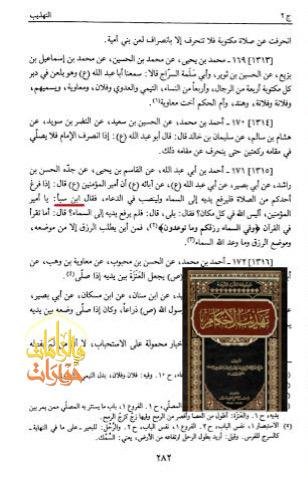 ج ٢ التهذيب
انحرفت عن صلاة مكتوبة فلا تنحرف إلا بانصراف لعن بني أمية.
[١٣١٣] ١٦٩ ـ محمد بن يحيى، عن محمد بن الحسين، عن محمد بن إسماعيل بن
بزيع، عن الحسين بن ثوير، وأبي سلمة السرّاج قالا: سمعنا أبا عبد الله (ع) وهو يلعن في دبر
كل مكتوبة أربعة من الرجال، وأربعاً من النساء، التيمي والعدوي وفلان، ومعاوية، ويسميهم،
وفلانة وفلانة، وهند، وأم الحكم أخت معاوية
[١٣١٤] ١٧٠ ـ محمد بن يحيى، عن محمد بن الحسين، عن الحسين بن سعيد، عن النضر بن سويد، عن
هشام بن سالم، عن سليمان بن خالد قال: قال أبو عبد الله (ع): إذا انصرف الإمام فلا يصلّي
في مقامه ركعتين حتى ينحرف عن مقامه ذلك.
[١٣١٥] ١٧١ ـ أحمد بن أبي عبد الله، عن القاسم بن يحيى، عن جدّه الحسن بن
راشد، عن أبي بصير، عن أبي عبد الله (ع)، عن آبائه (ع) أن أمير المؤمنين (ع) قال: إذا فرغ
أحدكم من الصلاة فليرفع يديه إلى السماء ولينصب في الدعاء، فقال ابن سبأ: يا أمير
المؤمنين، أليس الله في كل مكان؟ فقال: بلى، قال: فلم يرفع يديه إلى السماء؟ قال: أما تقرأ
في القرآن ﴿وفي السماء رزقكم وما توعدون﴾، فمن أين يطلب الرزق إلا من موضعه،
وموضع الرزق وما وعد الله السماء
[١٣١٦] ١٧٢ ـ أحمد بن محمد، عن الحسن بن محبوب، عن معاوية بن وهب، عن
(ص) يجعل العنزة بين يديه إذا صلّى
عن ابن سنان، عن ابن مسكان، عن أبي بصير،
ول الله (ص) ذراعاً، وكان إذا صلّى وضعه بين يديه
تهذيب الأحكام
خبار محمولة على الاستحباب،
٢٨٢